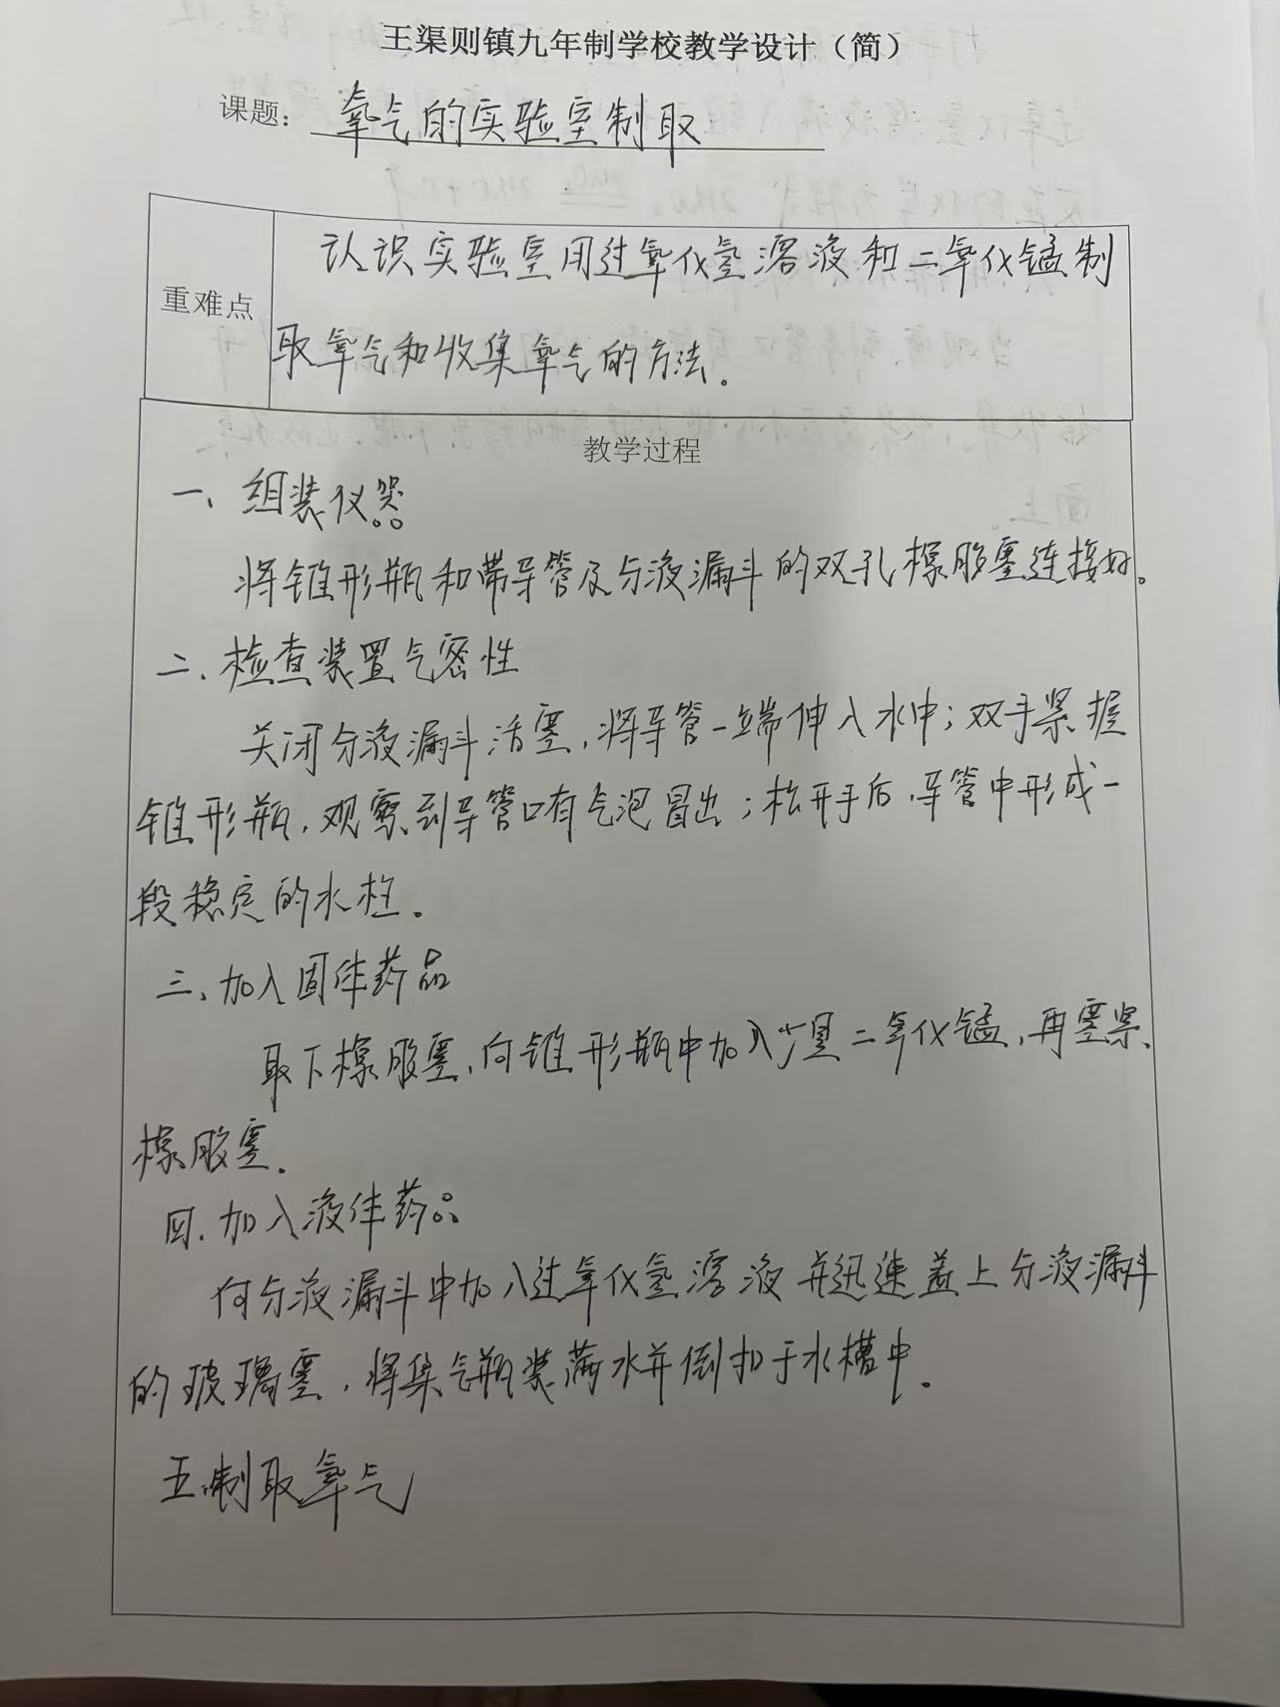 王渠则镇九年制学校教学设计（简）
课题：氧气的实验室制取
重难点
认识实验室用过氧化氢溶液和二氧化锰制
取氧气和收集氧气的方法。
教学过程
一、组装仪器
将锥形瓶和带导管及分液漏斗的双孔橡胶塞连接好。
二、检查装置气密性
关闭分液漏斗活塞，将导管一端伸入水中；双手紧握
锥形瓶，观察到导管口有气泡冒出；松开手后，导管中形成一
段稳定的水柱。
三、加入固体药品
取下橡胶塞，向锥形瓶中加入少量二氧化锰，再塞紧
橡胶塞。
四、加入液体药品
向分液漏斗中加入过氧化氢溶液并迅速盖上分液漏斗
的玻璃塞，将集气瓶装满水并倒扣于水槽中。
五、制取氧气